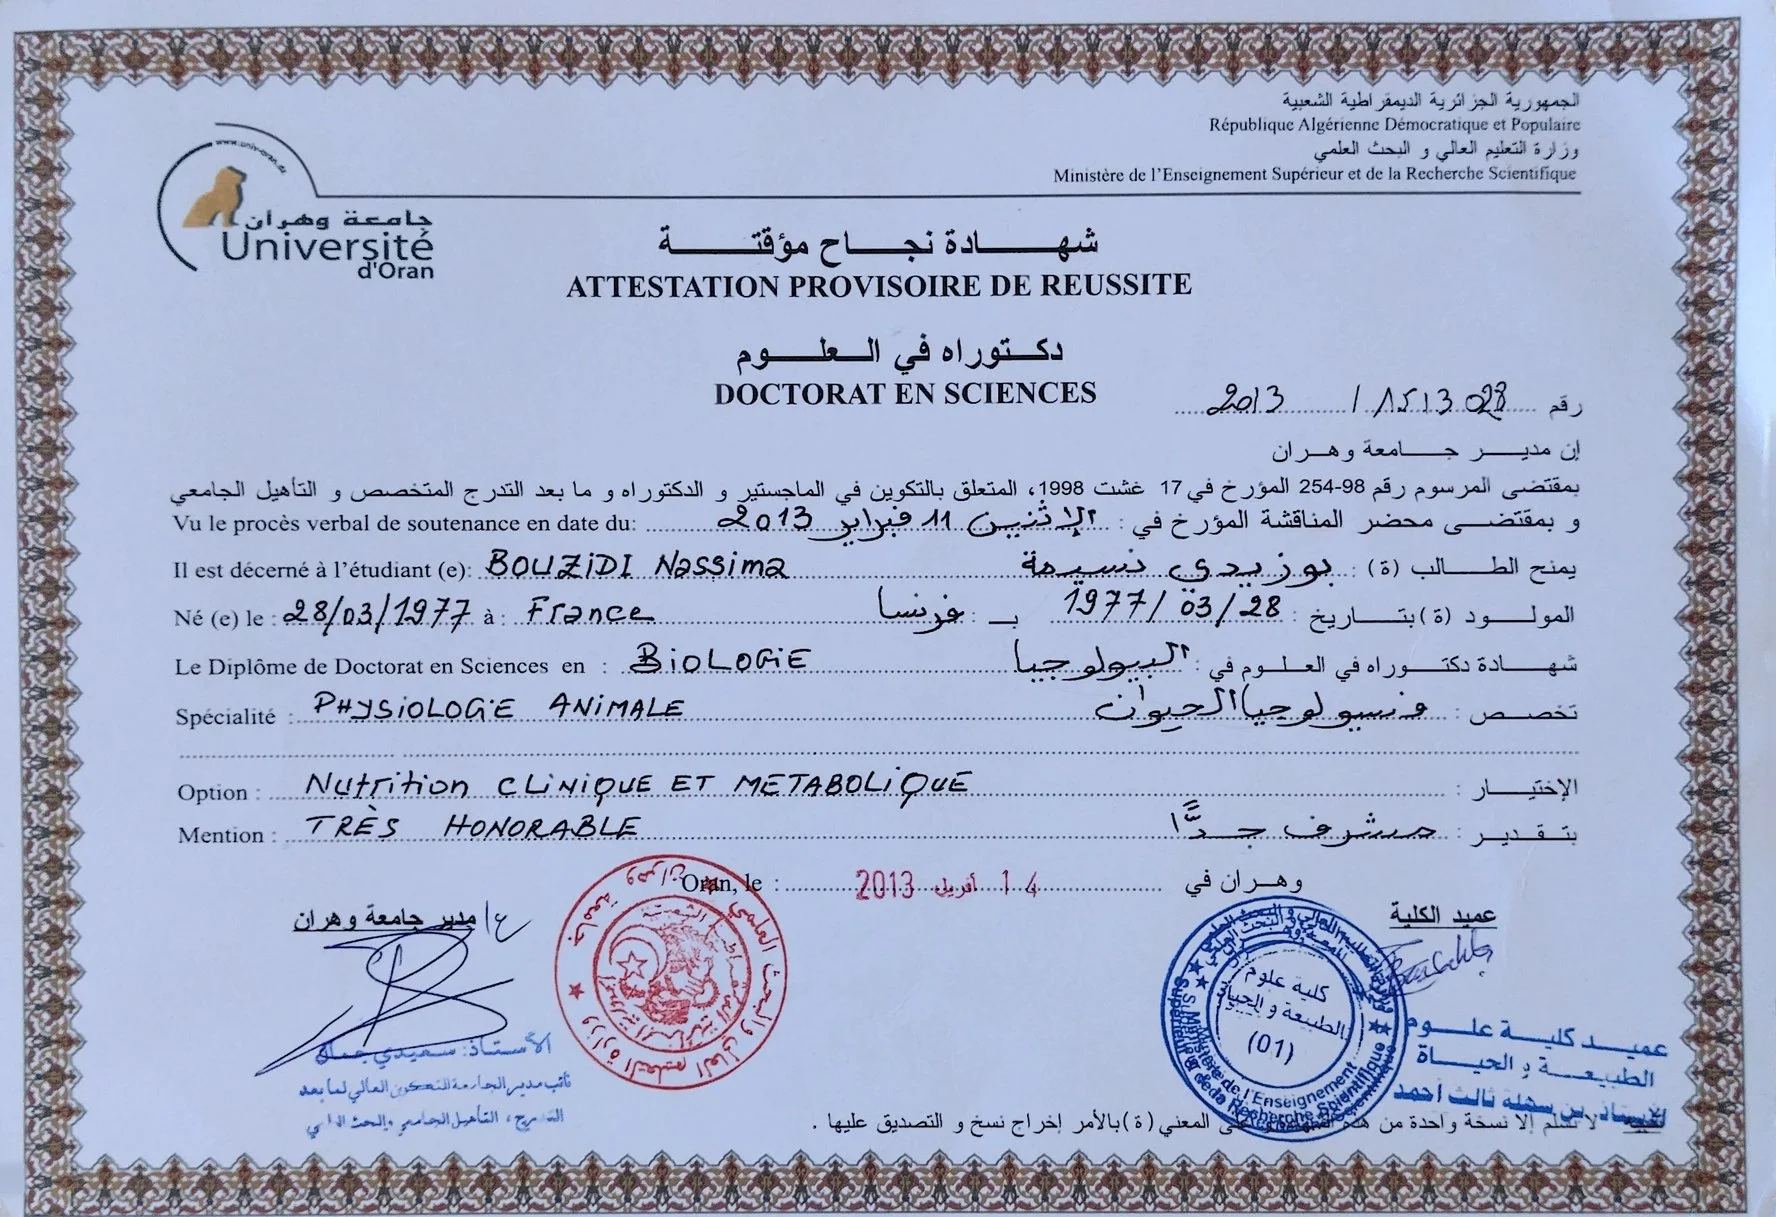 الجمهورية الجزائرية الديمقراطية الشعبية
République Algérienne Démocratique et Populaire
وزارة التعليم العالي و البحث العلمي
Ministère de l'Enseignement Supérieur et de la Recherche Scientifique
www.univ-oran.dz
جامعة وهران
Université
d'Oran
شهادة نجاح مؤقتة
ATTESTATION PROVISOIRE DE REUSSITE
دكتوراه في العلوم
DOCTORAT EN SCIENCES
رقم 1513028 / 2013
إن مدير جامعة وهران
بمقتضى المرسوم رقم 98-254 المؤرخ في 17 غشت 1998، المتعلق بالتكوين في الماجستير و الدكتوراه و ما بعد التدرج المتخصص و التأهيل الجامعي
و بمقتضى محضر المناقشة المؤرخ في : الإثنين 11 فبراير 2013 Vu le procès verbal de soutenance en date du:
Il est décerné à l'étudiant (e): BOUZiDI Nassima يمنح الطالب (ة) : بوزيدي نسيمة
Né (e) le : 28/03/1977 à : France المولود (ة) بتاريخ : 28/03/1977 بـ : فرنسا
Le Diplôme de Doctorat en Sciences en : BiOLOGiE شهادة دكتوراه في العلوم في : البيولوجيا
Spécialité : PHYSiOLOGiE ANiMALE تخصص : فسيولوجيا الحيوان
Option : Nutrition CLiNiQUE ET METABOLiQUE الإختيار :
Mention : TRÈS HONORABLE بتقدير : مشرف جدًّا
Oran, le : 14 أفريل 2013 وهران في
ع/ مدير جامعة وهران
عميد الكلية
الأستاذ: سعيدي
نائب مدير الجامعة للتكوين العالي لما بعد
التدرج، التأهيل الجامعي والبحث العلمي
جامعة وهران
وزارة التعليم العالي والبحث العلمي
كلية علوم
الطبيعة و الحياة
(01)
Ministère de l'Enseignement
Supérieur & de la Recherche Scientifique
عميد كلية علوم
الطبيعة و الحياة
الأستاذ بن سهلة ثالث أحمد
لا تسلم إلا نسخة واحدة من هذه على المعني (ة) بالأمر إخراج نسخ و التصديق عليها .